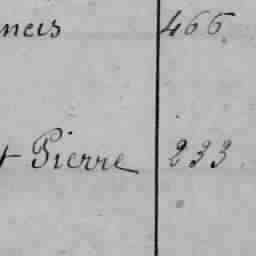 ncis 466
t Pierre 233